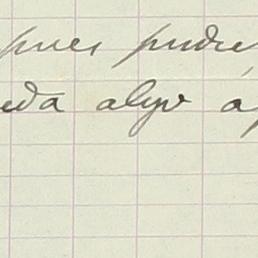 pues pudie
eda algo á